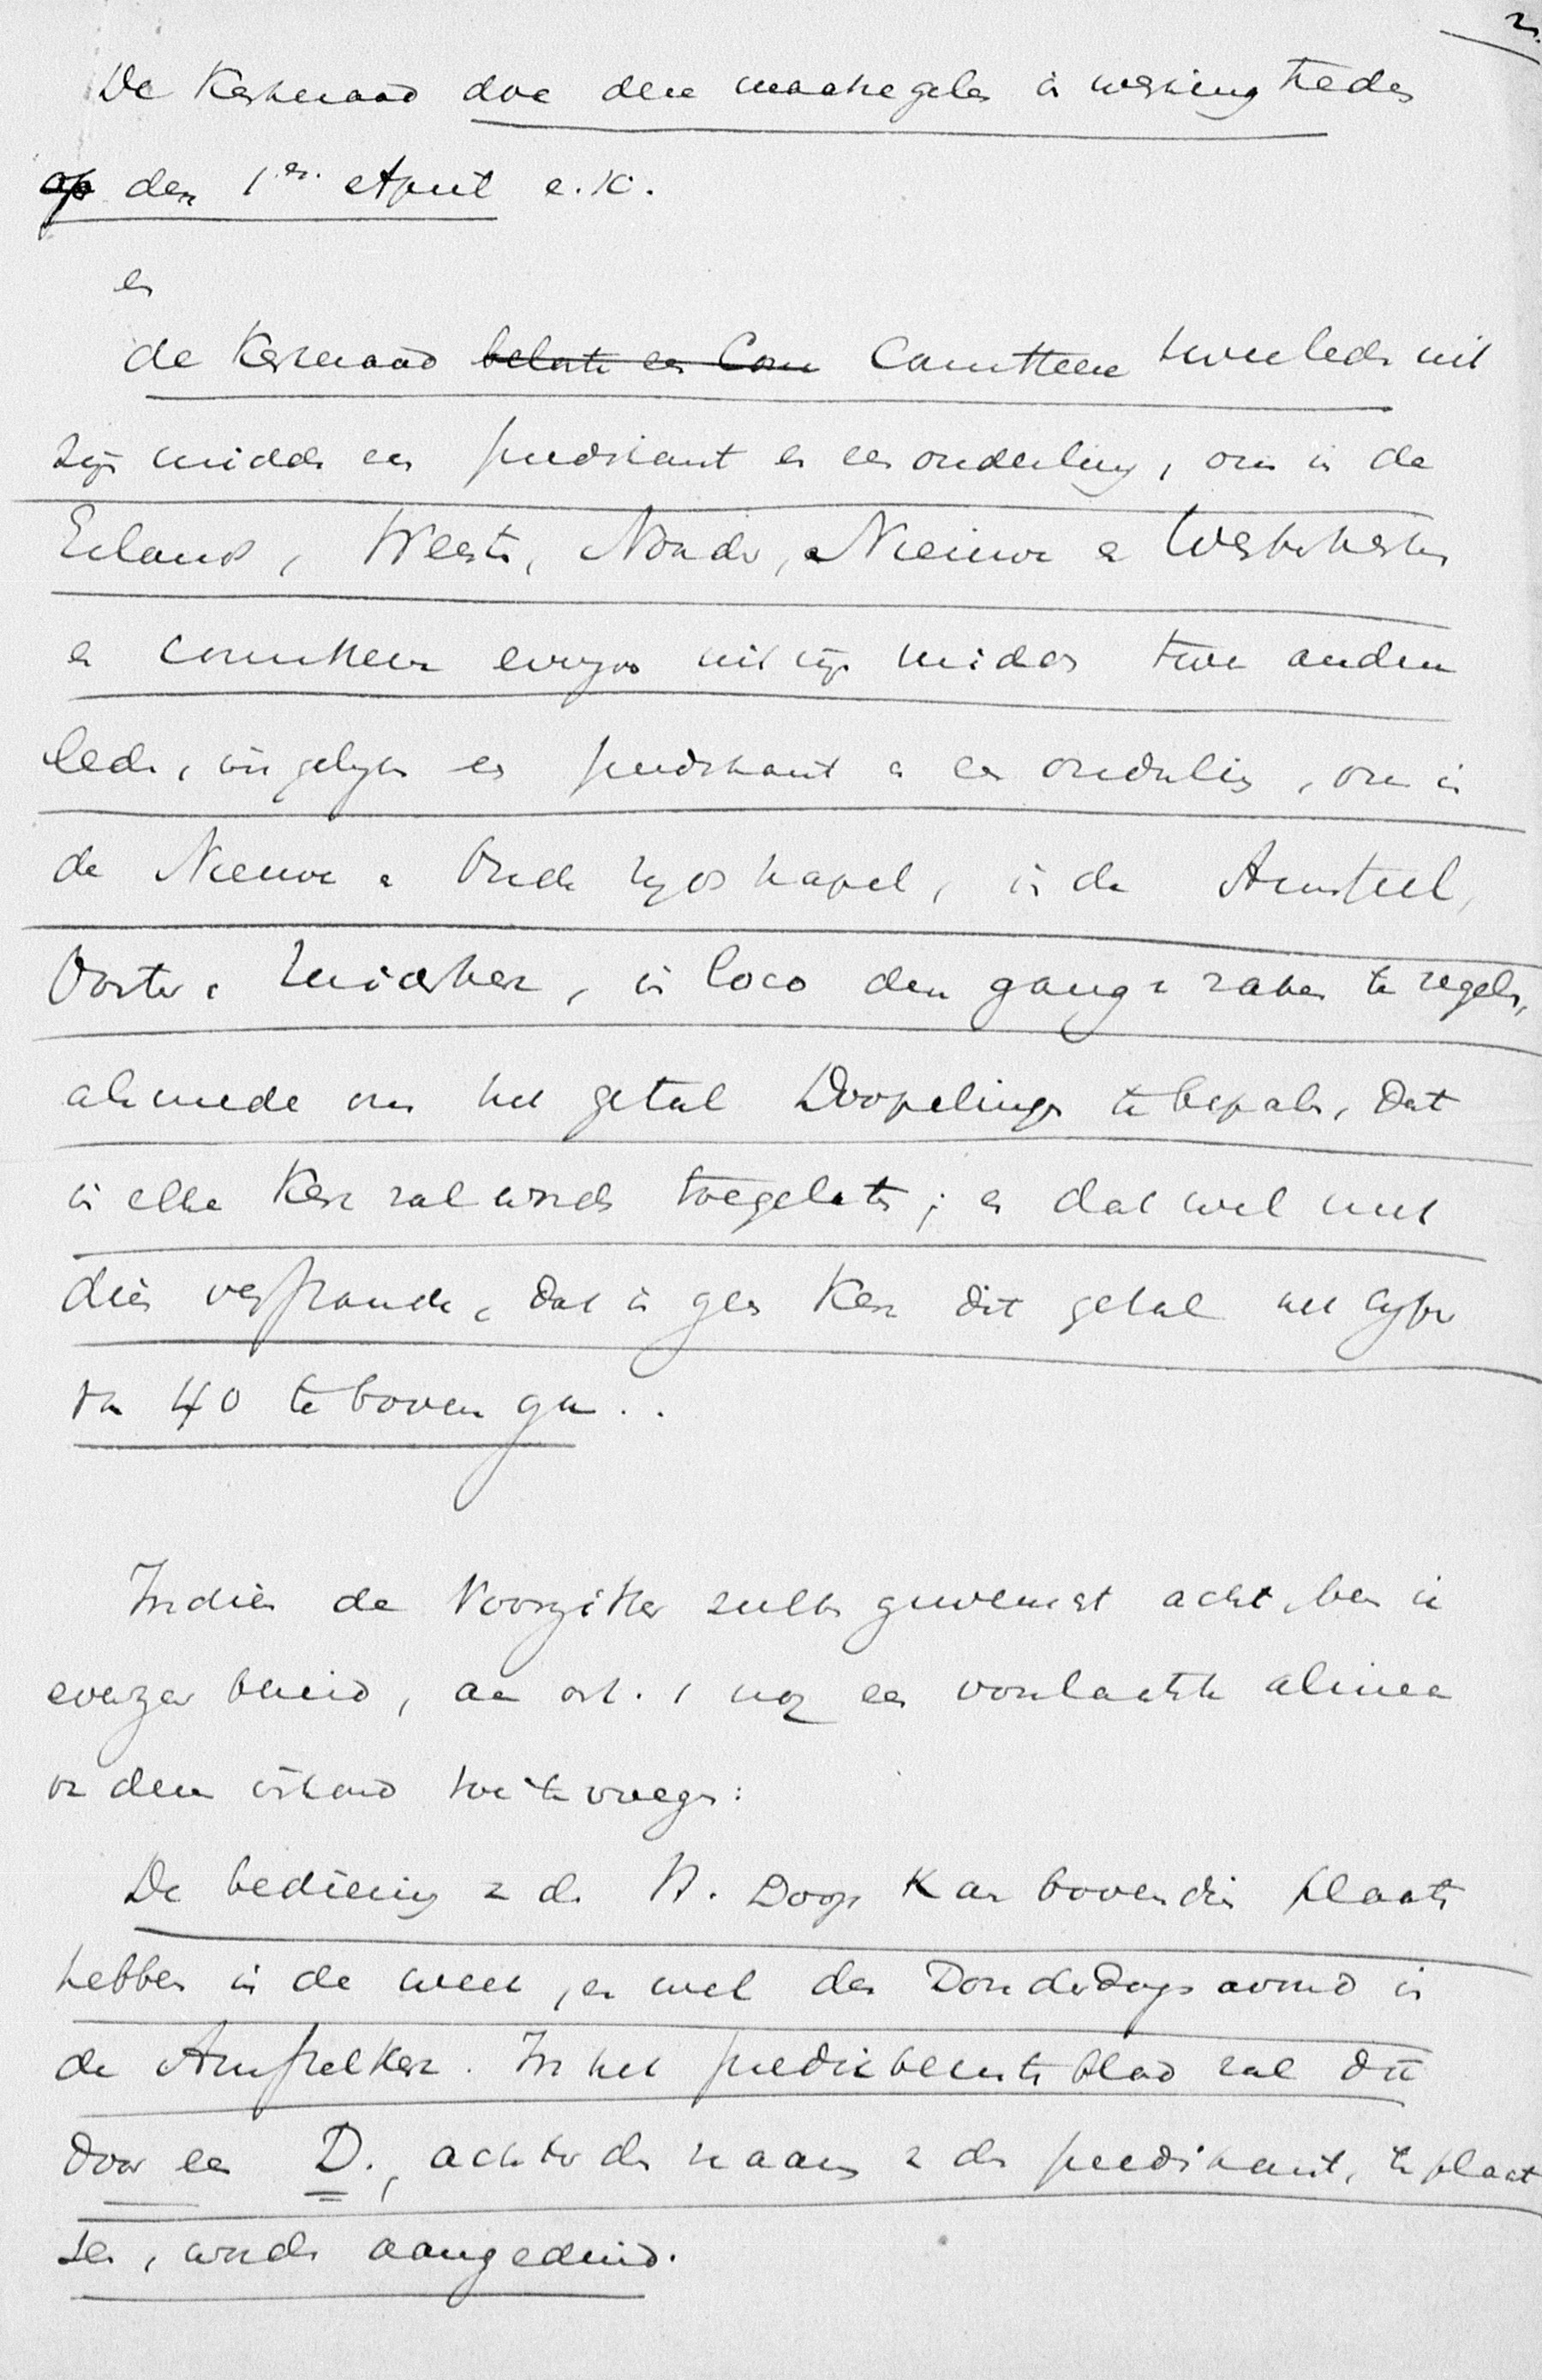 2.
De Kerkeraad doe deze maatregelen in werking treden
op den 1en. April e.k.
en
de Kerkeraad belaste een Com Committeere twee leden uit
zijn midden een predikant en een ouderling, om in de
Eiland, Wester, Noorder, Nieuwe en Westerkerken
en committeere evenzoo uit zijn midden twee andere
leden, insgelijks een predikant en een ouderling, om in
de Nieuwe en Oude Zijds kapel, in de Amstel,
Ooster en Zuiderkerk, in loco den gang v zaken te regelen,
alsmede om het getal Doopelingen te bepalen, dat
in elke Kerk zal worden toegelaten; en dat wel met
dien verstande, dat in geen Kerk dit getal het cijfer
van 40 te boven ga..
Indien de Voorzitter zulks gewenscht acht, ben ik
evenzeer bereid, aan art. 1 nog een voorlaatste alinea
van dezen inhoud toe te voegen:
De bediening v d. H. Doop kan bovendien plaats
hebben in de week, en wel den Donderdagavond in
de Amstelkerk. In het predikbeurtenblad zal dit
door een D., achter den naam v den predikant, te plaat
sen, worden aangeduid.